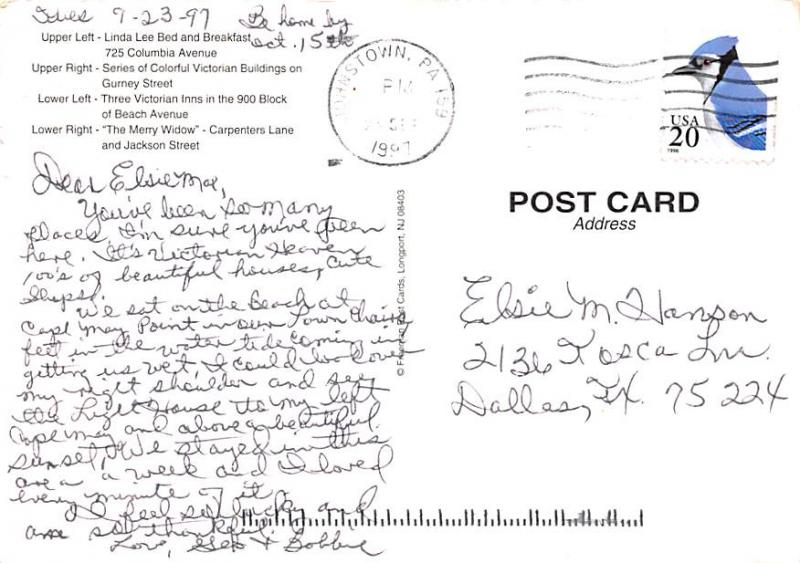 Tues 9-23-97 Be home by
Oct. 15th
Upper Left - Linda Lee Bed and Breakfast
725 Columbia Avenue
Upper Right - Series of Colorful Victorian Buildings on
Gurney Street
Lower Left - Three Victorian Inns in the 900 Block
of Beach Avenue
Lower Right - "The Merry Widow" - Carpenters Lane
and Jackson Street
JOHNSTOWN, PA 159
PM
SEP
1997
USA
20
1996
Dear Elsie Mae,
You've been so many
places, I'm sure you've been
here. It's Victorian Heaven
100's of beautiful houses, cute
shops.
We sat on the beach at
Cape May Point in our own chairs
feet in the water tide coming in
getting us wet, I could look over
my right shoulder and see
the Light House to my left
Cape May and above a beautiful
sunset, We stayed in this
area a week and I loved
every minute of it
I feel so lucky and
am so thankful.
Love, Geo & Bobbie
Post Cards, Longport, NJ 08403
POST CARD
Address
Elsie M. Hanson
2136 Tosca Ln.
Dallas, TX. 75224